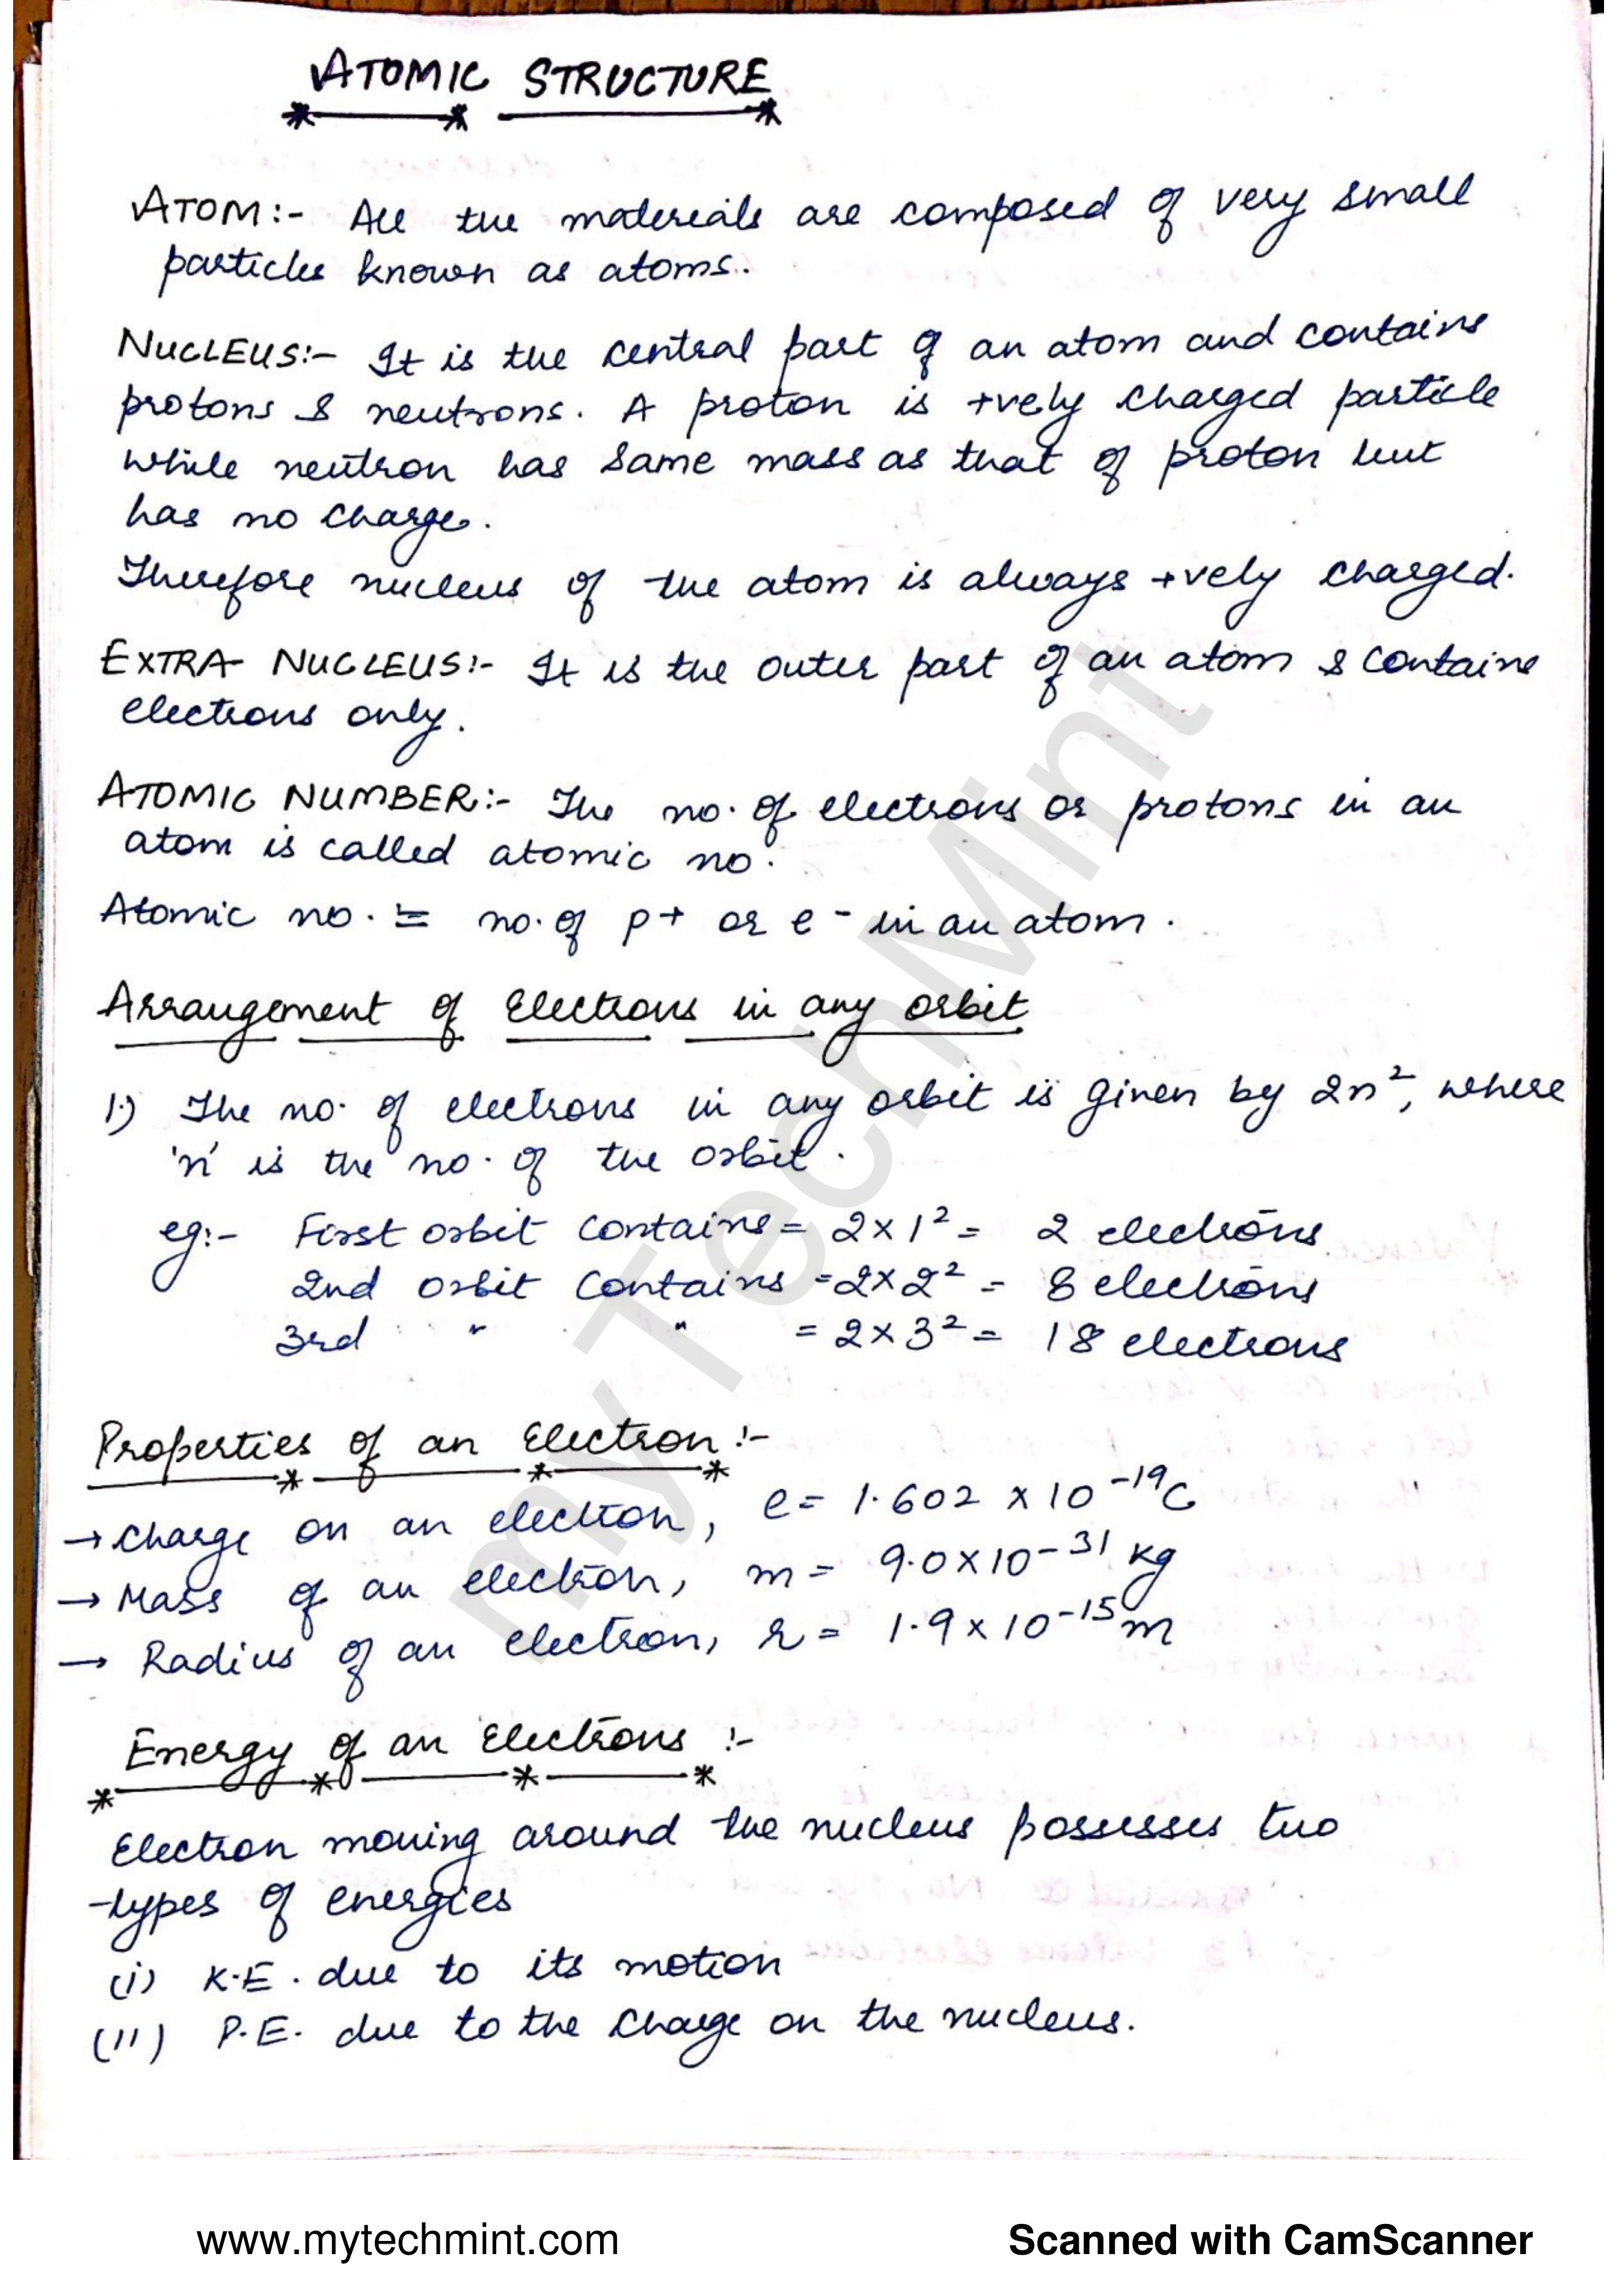 ATOMIC STRUCTURE
ATOM:- All the materials are composed of very small
particles known as atoms.
NUCLEUS:- It is the central part of an atom and contains
protons & neutrons. A proton is +vely charged particle
while neutron has same mass as that of proton but
has no charge.
Therefore nucleus of the atom is always +vely charged.
EXTRA NUCLEUS:- It is the outer part of an atom & contains
electrons only.
ATOMIC NUMBER:- The no. of electrons or protons in an
atom is called atomic no.
Atomic no. = no. of p+ or e- in an atom.
Arrangement of Electrons in any orbit
1.) The no. of electrons in any orbit is given by 2n², where
'n' is the no. of the orbit.
eg:- First orbit contains = 2 x 1² = 2 electrons
2nd orbit contains = 2 x 2² = 8 electrons
3rd " " = 2 x 3² = 18 electrons
Properties of an Electron :-
→ Charge on an electron, e = 1.602 x 10⁻¹⁹C
→ Mass of an electron, m = 9.0 x 10⁻³¹ kg
→ Radius of an electron, r = 1.9 x 10⁻¹⁵ m
Energy of an Electrons :-
Electron moving around the nucleus possesses two
types of energies
(i) K.E. due to its motion
(ii) P.E. due to the charge on the nucleus.
myTechMint
www.mytechmint.com
Scanned with CamScanner